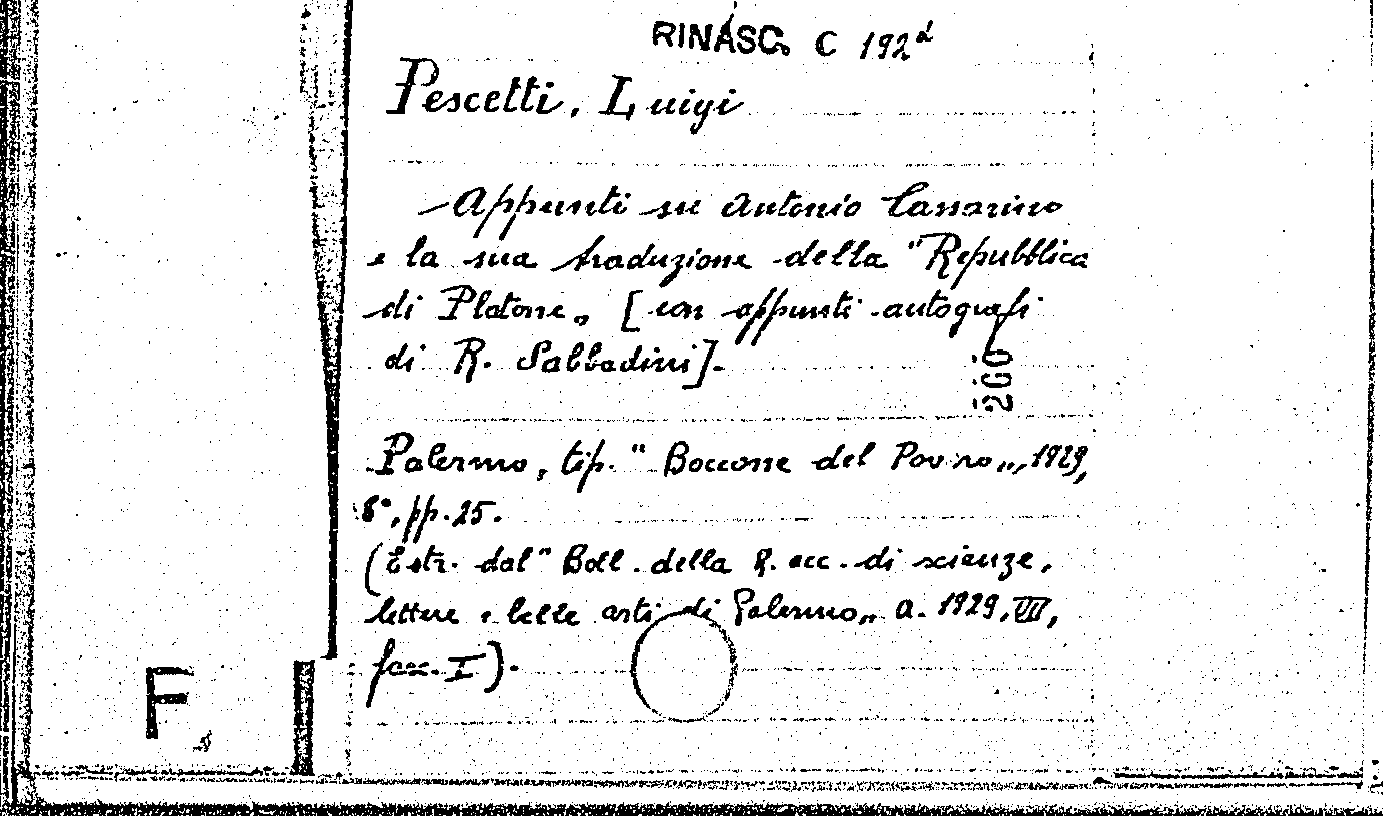 RINASC. C 192d
Pescetti, Luigi
Appunti su Antonio Cassarino
e la sua traduzione della "Repubblica
di Platone„ [con appunti autografi
di R. Sabbadini].
260
Palermo, tip. "Boccone del Povero„, 1929,
8°, pp. 25.
(Estr. dal "Boll. della R. acc. di scienze,
lettere e belle arti di Palermo„ a. 1929, VII,
fasc. I).
F